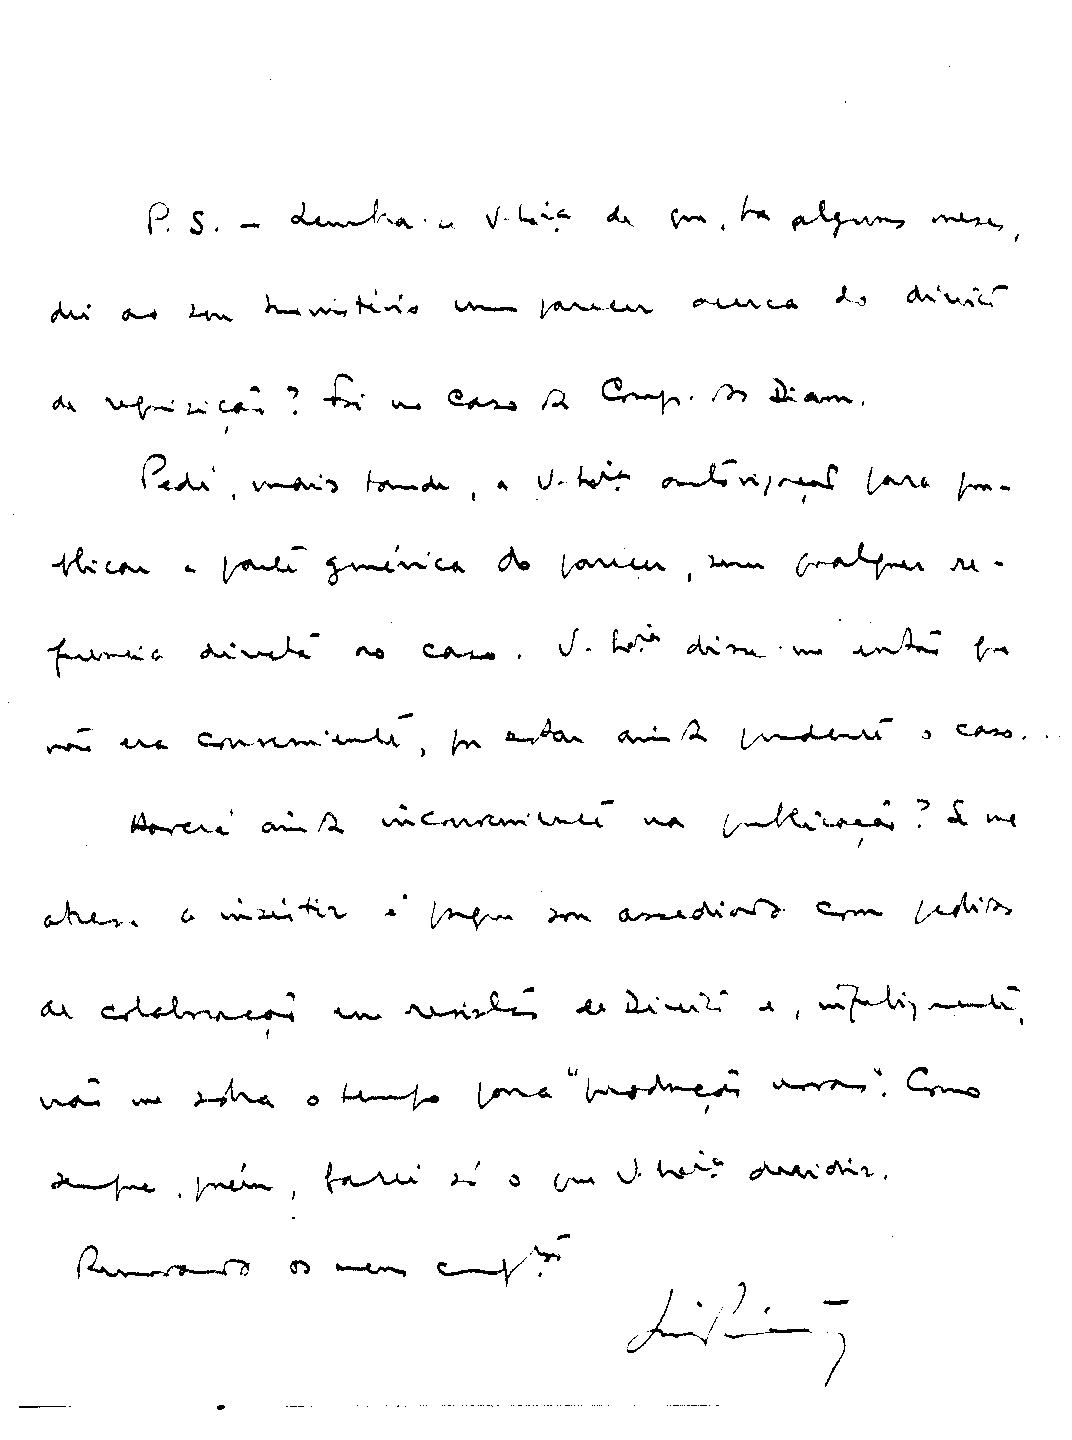 P. S. - Lembra-se V. Exª de que, há alguns meses,
dei ao seu Ministério um parecer acerca do direito
de requisição? Foi no caso da Comp. dos Diam.
Pedi, mais tarde, a V. Exª autorização para pu-
blicar a parte genérica do parecer, sem qualquer re-
ferência directa ao caso. V. Exª disse-me então que
não era conveniente, por estar ainda pendente o caso...
Haverá ainda inconveniente na publicação? Se me
atrevo a insistir é porque sou assediado com pedidos
de colaboração em revistas de Direito e, infelizmente,
não me sobra o tempo para "produções novas". Como
sempre, porém, farei só o que V. Exª decidir.
Renovando os meus cumptos